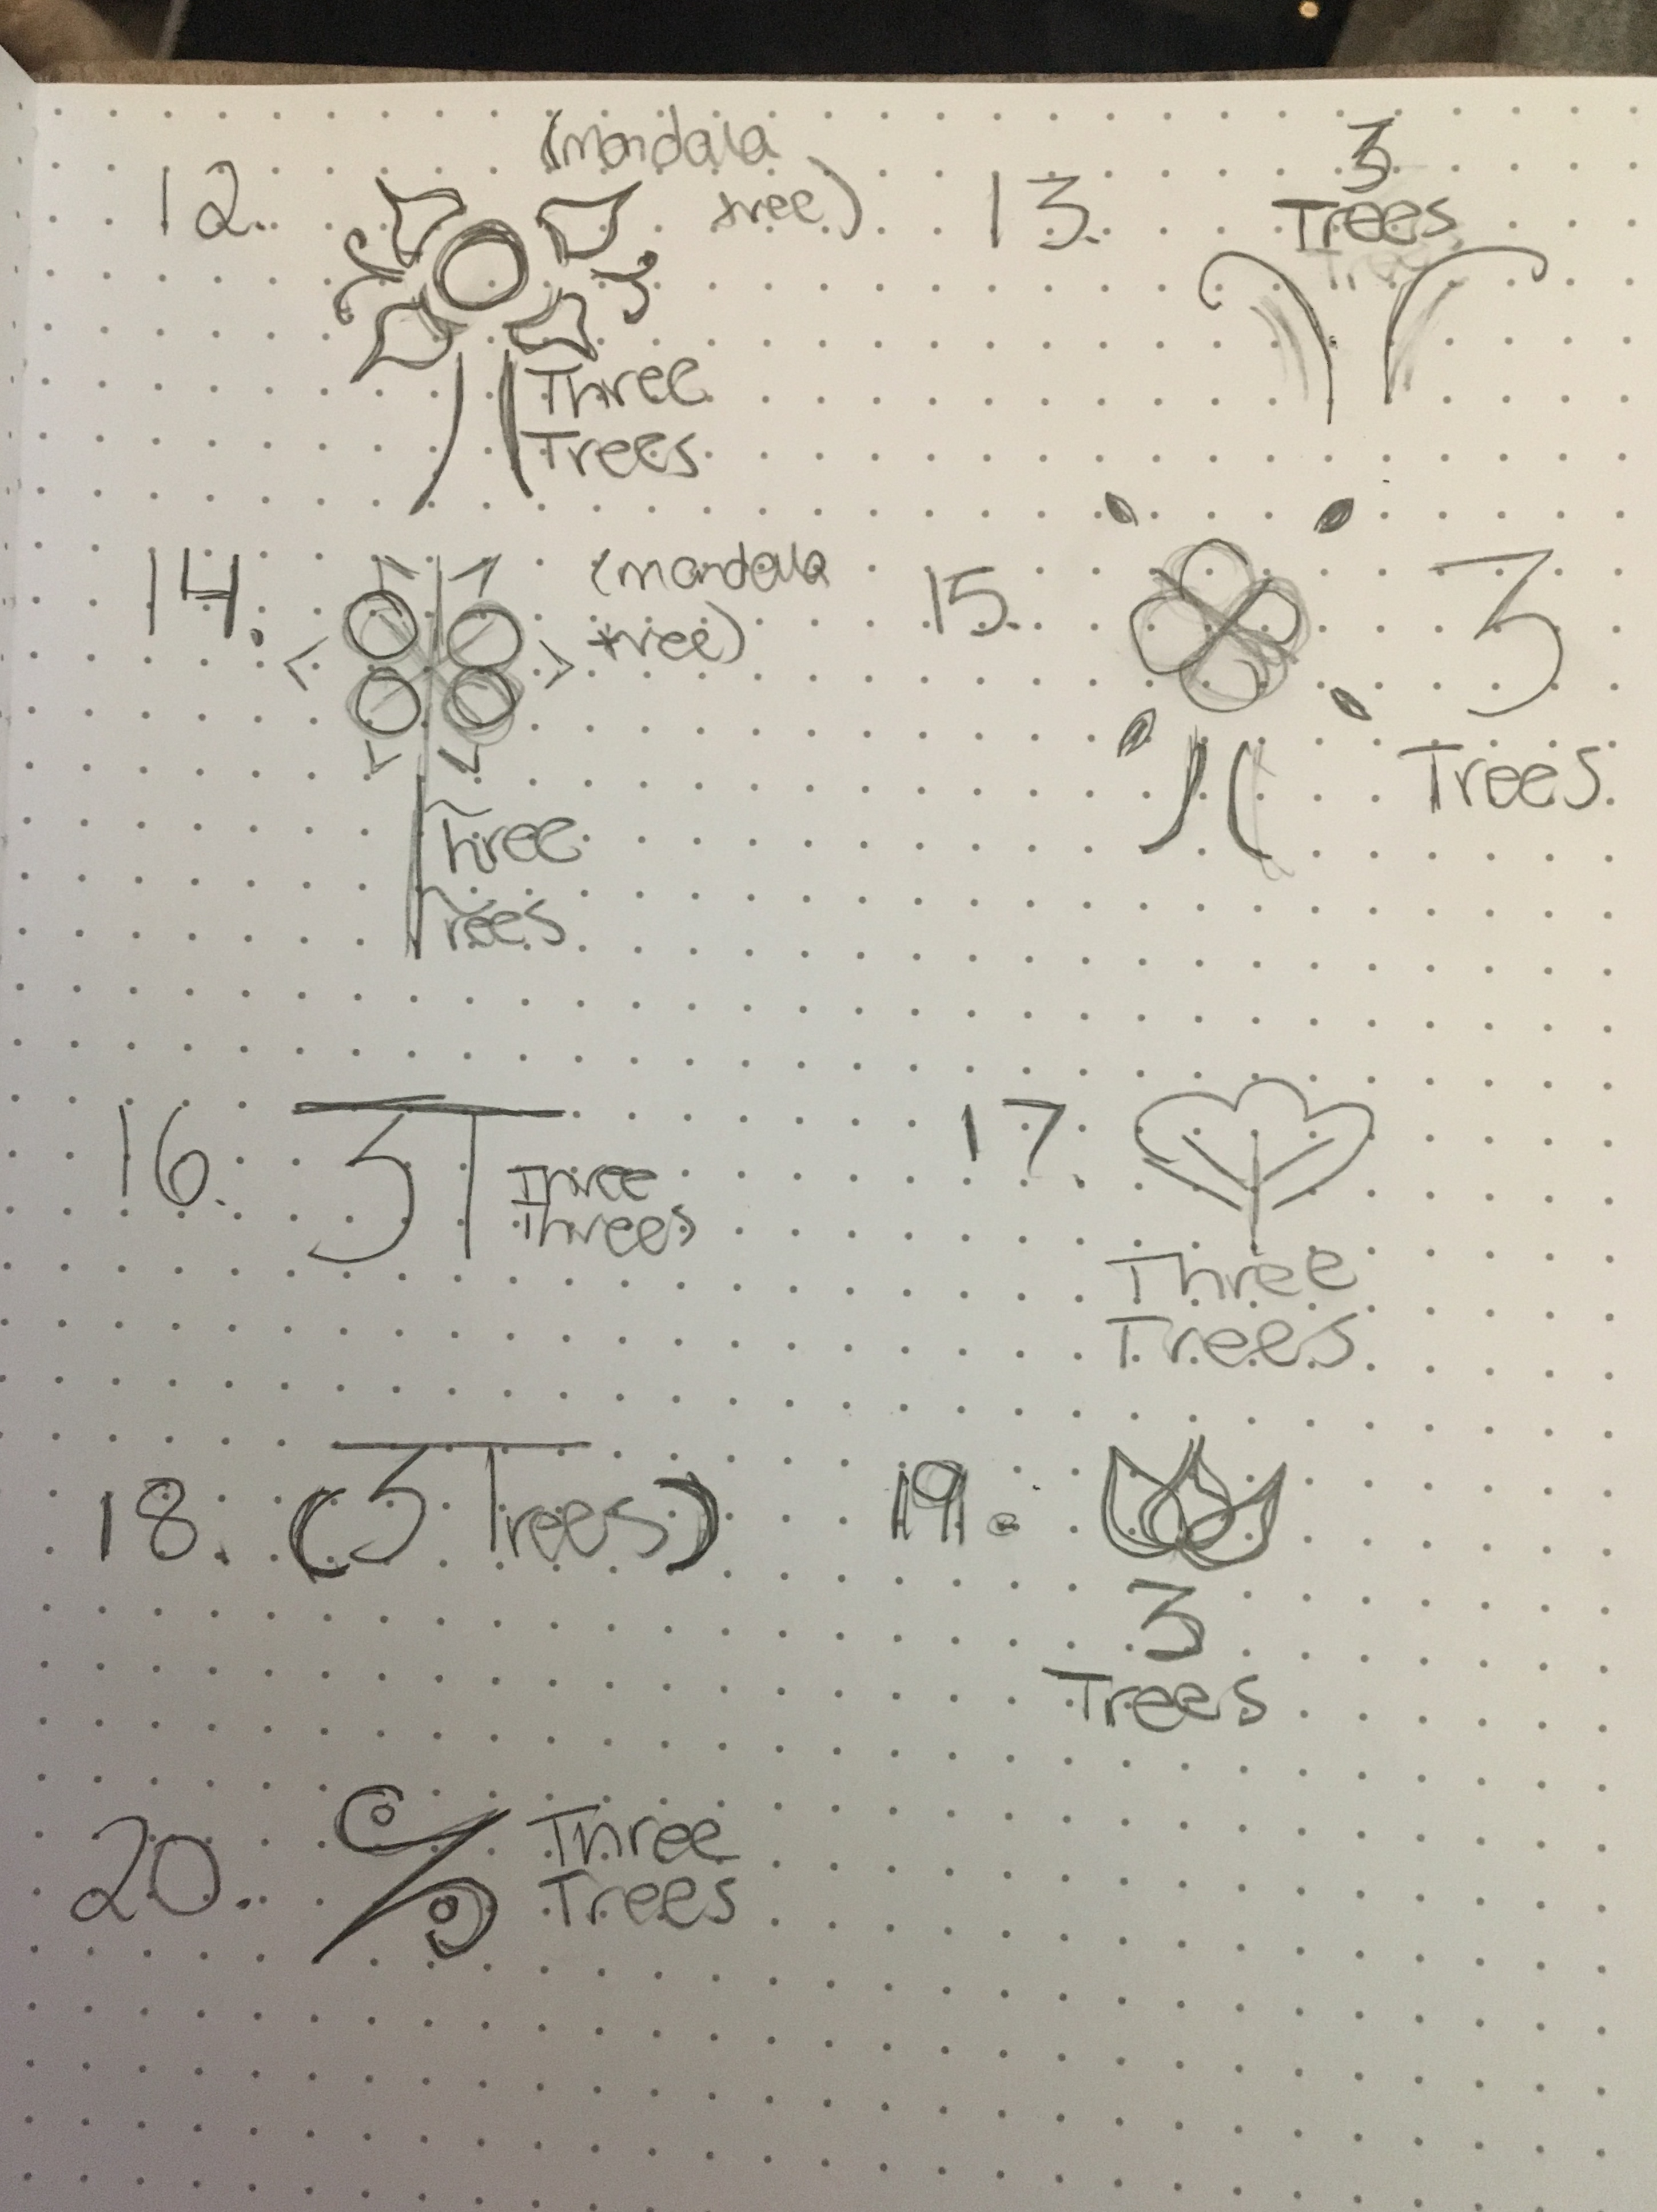 12.
(mandala
tree)
Three
Trees
13.
3
Trees
14.
(mandala
tree)
Three
Trees
15.
3
Trees
16.
3T
Three
Threes
17.
Three
Trees
18. (3 Trees)
19.
3
Trees
20.
Three
Trees